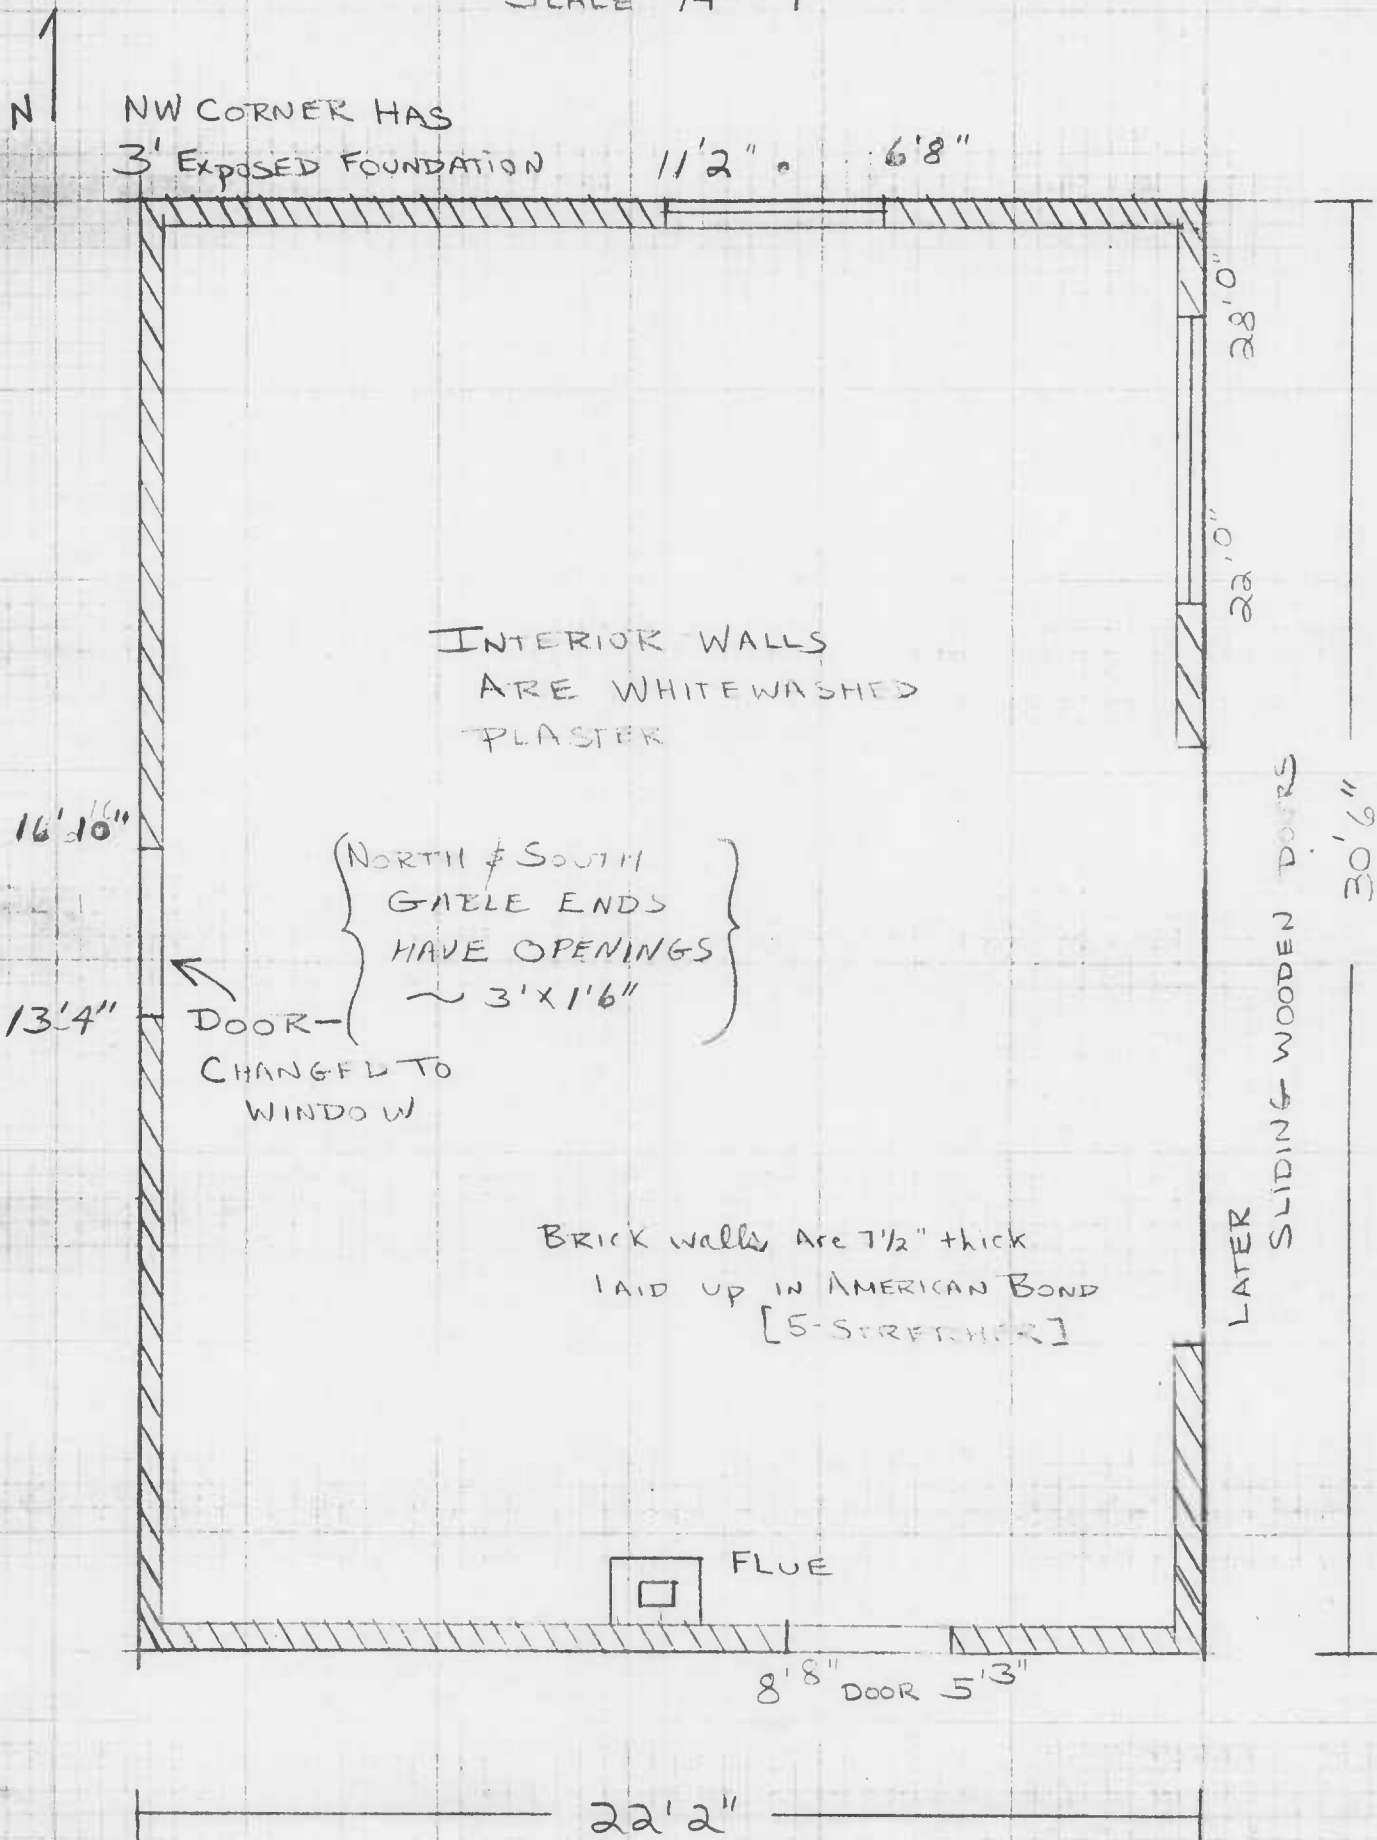 SCALE
N
NW CORNER HAS
3' EXPOSED FOUNDATION
11'2"
6'8"
28'0"
22'0"
INTERIOR WALLS
ARE WHITEWASHED
PLASTER
16'10"
NORTH & SOUTH
GABLE ENDS
HAVE OPENINGS
~ 3' X 1'6"
13'4"
DOOR—
CHANGED TO
WINDOW
LATER
SLIDING WOODEN DOORS
30'6"
BRICK walls Are 7 1/2" thick
LAID UP IN AMERICAN BOND
[5-STRETCHER]
FLUE
8'8" DOOR 5'3"
22'2"